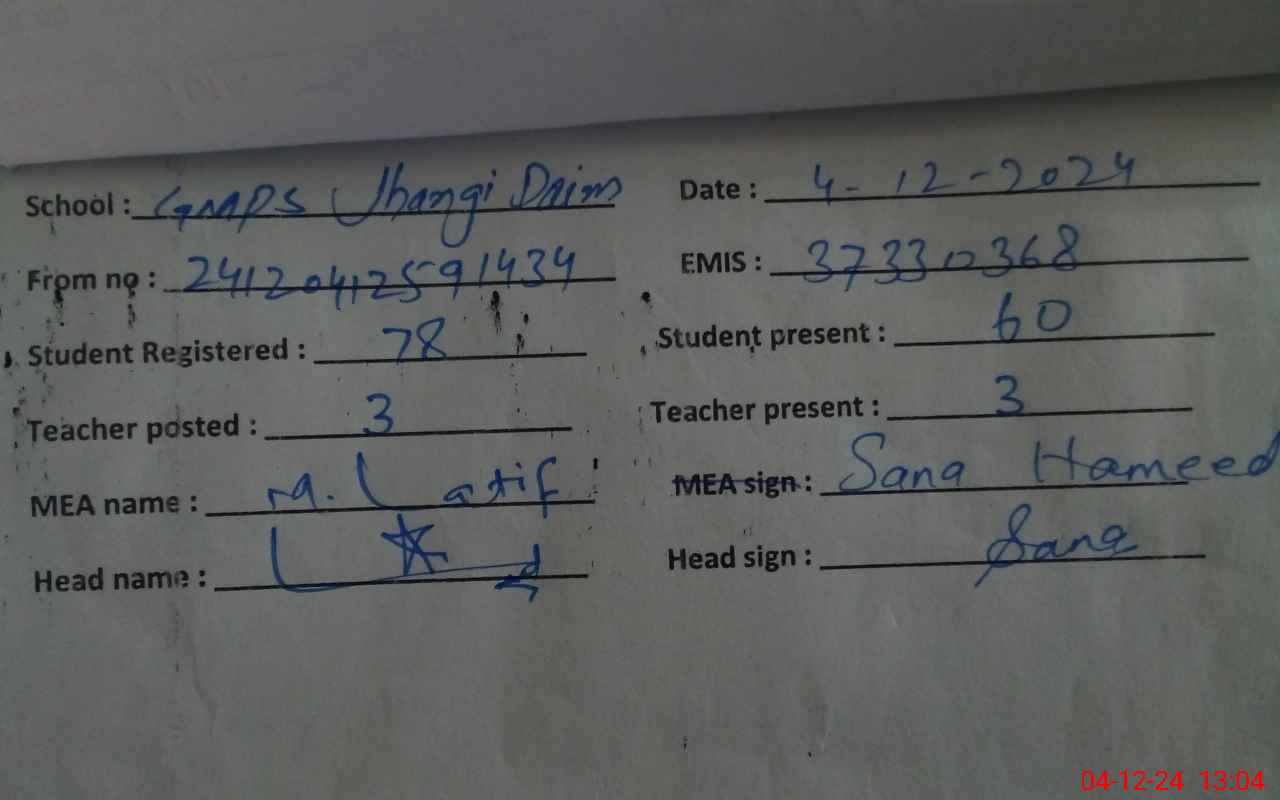 School : GMPS Jhangi Daim Date : 4-12-2024
From no : 241204125591434 EMIS : 37330368
Student Registered : 78 Student present : 60
Teacher posted : 3 Teacher present : 3
MEA name : M. Latif MEA sign : Sana Hameed
Head name : Head sign : Sana
04-12-24 13:04